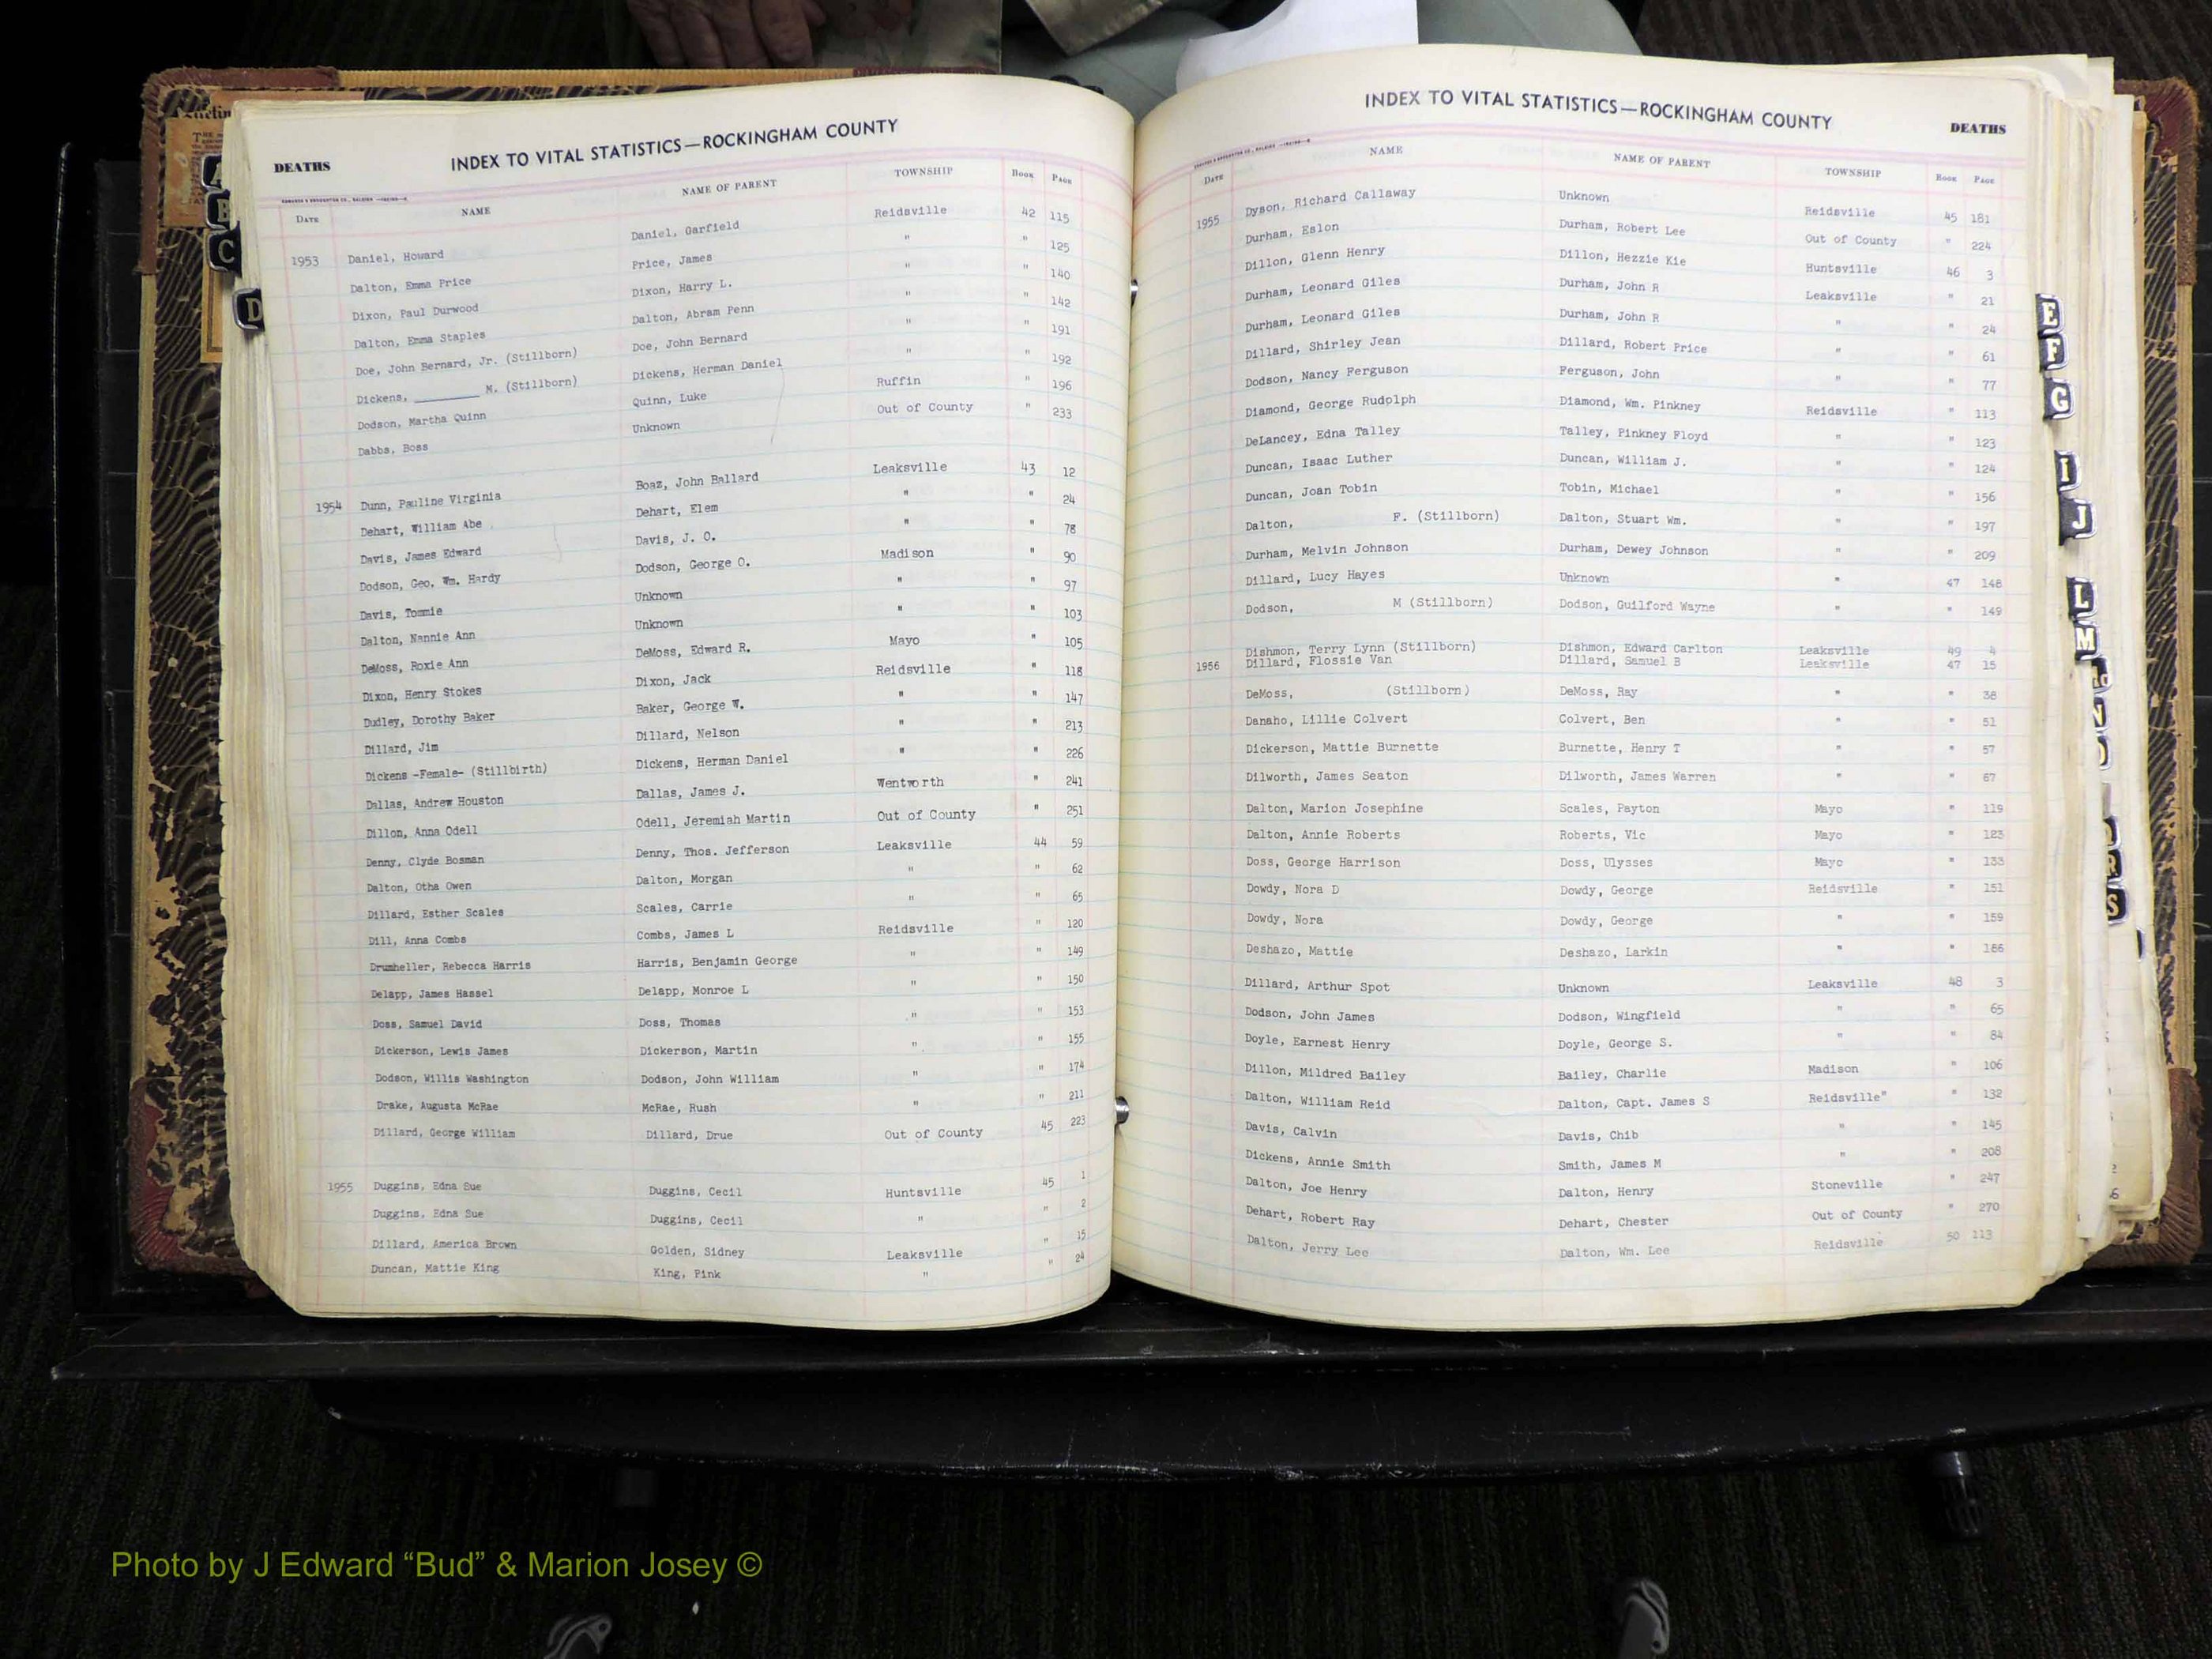 INDEX TO VITAL STATISTICS—ROCKINGHAM COUNTY
DEATHS
DATE NAME NAME OF PARENT TOWNSHIP Book PAGE
1953 Daniel, Howard Daniel, Garfield Reidsville 42 115
Dalton, Emma Price Price, James " " 125
Dixon, Paul Durwood Dixon, Harry L. " " 140
Dalton, Emma Staples Dalton, Abram Penn " " 142
Doe, John Bernard, Jr. (Stillborn) Doe, John Bernard " " 191
Dickens, ________ M. (Stillborn) Dickens, Herman Daniel " " 192
Dodson, Martha Quinn Quinn, Luke Ruffin " 196
Dabbs, Boss Unknown Out of County " 233
1954 Dunn, Pauline Virginia Boaz, John Ballard Leaksville 43 12
Dehart, William Abe Dehart, Elem " " 24
Davis, James Edward Davis, J. O. " " 78
Dodson, Geo. Wm. Hardy Dodson, George O. Madison " 90
Davis, Tommie Unknown " " 97
Dalton, Nannie Ann Unknown " " 103
DeMoss, Roxie Ann DeMoss, Edward R. Mayo " 105
Dixon, Henry Stokes Dixon, Jack Reidsville " 118
Dudley, Dorothy Baker Baker, George W. " " 147
Dillard, Jim Dillard, Nelson " " 213
Dickens -Female- (Stillbirth) Dickens, Herman Daniel " " 226
Dallas, Andrew Houston Dallas, James J. Wentworth " 241
Dillon, Anna Odell Odell, Jeremiah Martin Out of County " 251
Denny, Clyde Bosman Denny, Thos. Jefferson Leaksville 44 59
Dalton, Otha Owen Dalton, Morgan " " 62
Dillard, Esther Scales Scales, Carrie " " 65
Dill, Anna Combs Combs, James L Reidsville " 120
Drumheller, Rebecca Harris Harris, Benjamin George " " 149
Delapp, James Hassel Delapp, Monroe L " " 150
Doss, Samuel David Doss, Thomas " " 153
Dickerson, Lewis James Dickerson, Martin " " 155
Dodson, Willis Washington Dodson, John William " " 174
Drake, Augusta McRae McRae, Rush " " 211
Dillard, George William Dillard, Drue Out of County 45 223
1955 Duggins, Edna Sue Duggins, Cecil Huntsville 45 1
Duggins, Edna Sue Duggins, Cecil " " 2
Dillard, America Brown Golden, Sidney Leaksville " 15
Duncan, Mattie King King, Pink " " 24
INDEX TO VITAL STATISTICS—ROCKINGHAM COUNTY
DEATHS
DATE NAME NAME OF PARENT TOWNSHIP Book PAGE
1955 Dyson, Richard Callaway Unknown Reidsville 45 181
Durham, Eslon Durham, Robert Lee Out of County " 224
Dillon, Glenn Henry Dillon, Hezzie Kie Huntsville 46 3
Durham, Leonard Giles Durham, John R Leaksville " 21
Durham, Leonard Giles Durham, John R " " 24
Dillard, Shirley Jean Dillard, Robert Price " " 61
Dodson, Nancy Ferguson Ferguson, John " " 77
Diamond, George Rudolph Diamond, Wm. Pinkney Reidsville " 113
DeLancey, Edna Talley Talley, Pinkney Floyd " " 123
Duncan, Isaac Luther Duncan, William J. " " 124
Duncan, Joan Tobin Tobin, Michael " " 156
Dalton, F. (Stillborn) Dalton, Stuart Wm. " " 197
Durham, Melvin Johnson Durham, Dewey Johnson " " 209
Dillard, Lucy Hayes Unknown " 47 148
Dodson, M (Stillborn) Dodson, Guilford Wayne " " 149
Dishmon, Terry Lynn (Stillborn) Dishmon, Edward Carlton Leaksville 49 4
1956 Dillard, Flossie Van Dillard, Samuel B Leaksville 47 15
DeMoss, (Stillborn) DeMoss, Ray " " 38
Danaho, Lillie Colvert Colvert, Ben " " 51
Dickerson, Mattie Burnette Burnette, Henry T " " 57
Dilworth, James Seaton Dilworth, James Warren " " 67
Dalton, Marion Josephine Scales, Payton Mayo " 119
Dalton, Annie Roberts Roberts, Vic Mayo " 123
Doss, George Harrison Doss, Ulysses Mayo " 133
Dowdy, Nora D Dowdy, George Reidsville " 151
Dowdy, Nora Dowdy, George " " 159
Deshazo, Mattie Deshazo, Larkin " " 186
Dillard, Arthur Spot Unknown Leaksville 48 3
Dodson, John James Dodson, Wingfield " " 65
Doyle, Earnest Henry Doyle, George S. " " 84
Dillon, Mildred Bailey Bailey, Charlie Madison " 106
Dalton, William Reid Dalton, Capt. James S Reidsville" " 132
Davis, Calvin Davis, Chib " " 145
Dickens, Annie Smith Smith, James M " " 208
Dalton, Joe Henry Dalton, Henry Stoneville " 247
Dehart, Robert Ray Dehart, Chester Out of County " 270
Dalton, Jerry Lee Dalton, Wm. Lee Reidsville 50 113
A
B
C
D
E
F
G
I
J
L
M
N
O
R
S
Photo by J Edward “Bud” & Marion Josey ©